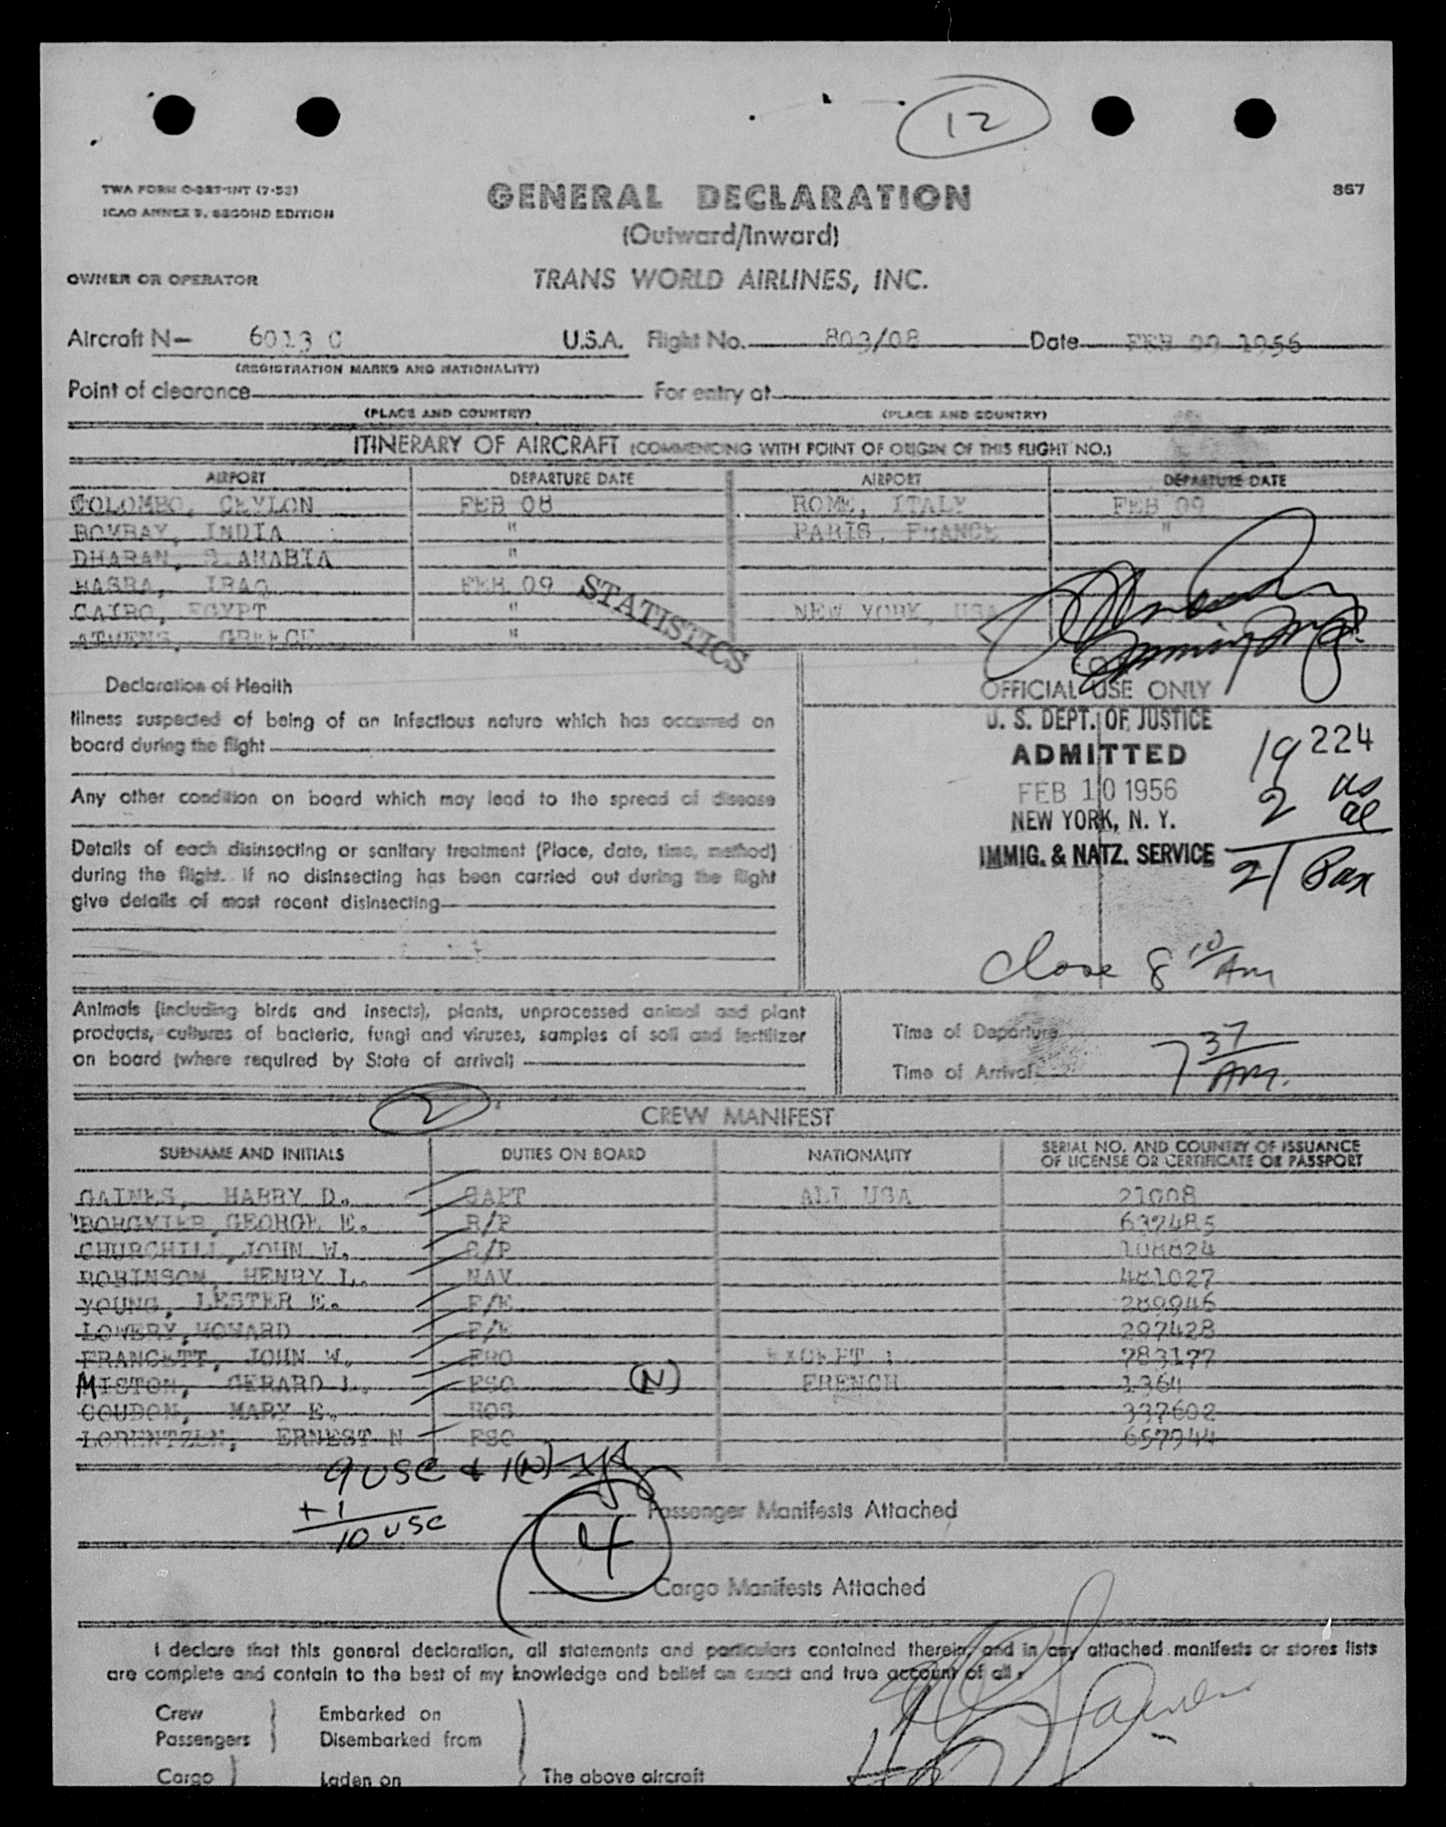 12
TWA FORM O-287-INT (7-53)
ICAO ANNEX 9, SECOND EDITION
GENERAL DECLARATION
367
(Outward/Inward)
OWNER OR OPERATOR TRANS WORLD AIRLINES, INC.
Aircraft N- 6013 C U.S.A. Flight No. 803/08 Date FEB 09 1956
(REGISTRATION MARKS AND NATIONALITY)
Point of clearance For entry at
(PLACE AND COUNTRY) (PLACE AND COUNTRY)
ITINERARY OF AIRCRAFT (COMMENCING WITH POINT OF ORIGIN OF THIS FLIGHT NO.)
AIRPORT DEPARTURE DATE AIRPORT DEPARTURE DATE
COLOMBO, CEYLON FEB 08 ROME, ITALY FEB 09
BOMBAY, INDIA " PARIS, FRANCE "
DHARAN, S.ARABIA "
BASRA, IRAQ FEB 09
CAIRO, EGYPT " NEW YORK, USA
ATHENS, GREECE "
STATISTICS
Declaration of Health
OFFICIAL USE ONLY
Illness suspected of being of an infectious nature which has occurred on
board during the flight
Any other condition on board which may lead to the spread of disease
Details of each disinsecting or sanitary treatment (Place, date, time, method)
during the flight. If no disinsecting has been carried out during the flight
give details of most recent disinsecting
U. S. DEPT. OF JUSTICE
ADMITTED
FEB 10 1956
NEW YORK, N. Y.
IMMIG. & NATZ. SERVICE
19 224
2 us
al
21 Pax
Close 8 10 AM
Animals (including birds and insects), plants, unprocessed animal and plant
products, cultures of bacteria, fungi and viruses, samples of soil and fertilizer
on board (where required by State of arrival)
Time of Departure
Time of Arrival 7 37 AM.
2
CREW MANIFEST
SURNAME AND INITIALS DUTIES ON BOARD NATIONALITY SERIAL NO. AND COUNTRY OF ISSUANCE
OF LICENSE OR CERTIFICATE OR PASSPORT
GAINES, HARRY D. CAPT ALL USA 21008
BORGMIER, GEORGE E. R/P 637485
CHURCHILL, JOHN W. R/P 108824
ROBINSON, HENRY L. NAV 481027
YOUNG, LESTER E. F/E 289946
LOWERY, HOWARD F/E 297428
FRANCETT, JOHN W. FRO EXCEPT : 783177
MISTOM, GERARD L. FSO (N) FRENCH 1364
COUDON, MARY E. HOS 337602
LORENTZEN, ERNEST N FSO 657944
9 USC + 1(N)
+ 1
10 USC
Passenger Manifests Attached
4
Cargo Manifests Attached
I declare that this general declaration, all statements and particulars contained therein, and in any attached manifests or stores lists
are complete and contain to the best of my knowledge and belief an exact and true account of all
Crew Embarked on
Passengers Disembarked from
Cargo Laden on The above aircraft